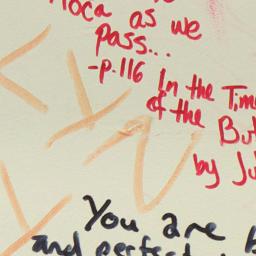 as we
pass...
-p.116
In the Time
of the But
by Ju
You are
and perfect